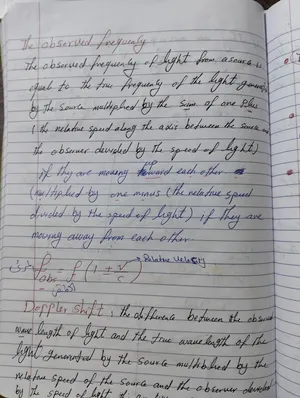 The observed frequency
The observed frequency of light from a source is
equal to the true frequency of the light generated
by the source multiplied by the sum of one plus
(the relative speed along the axis between the source and
the observer devided by the speed of light)
if they are moving toward each other
(multiplied by one minus (the relative speed
divided by the speed of light) if they are
moving away from each other
→ Relative Velocity
f obs = f (1 ± v/c)
Doppler Shift: the difference between the observed
wave length of light and the true wave length of the
light generated by the source multiblied by the
relative speed of the source and the observer devided
by the speed of